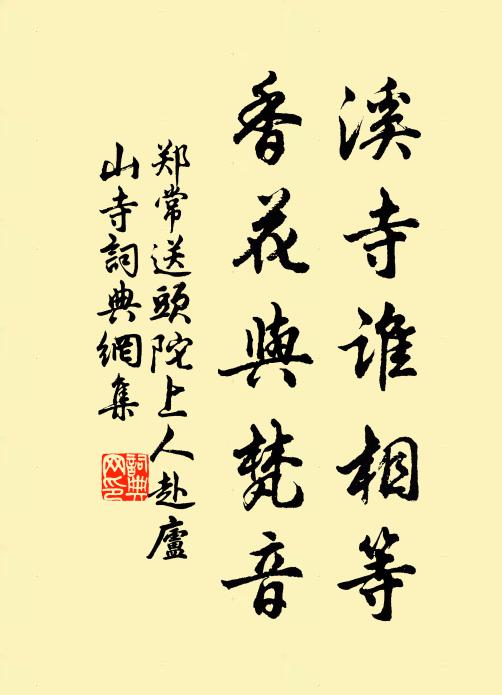 溪寺谁相等
香花與梵音
郑常送頭陀上人赴廬
山寺詞典網集
詞典
网印